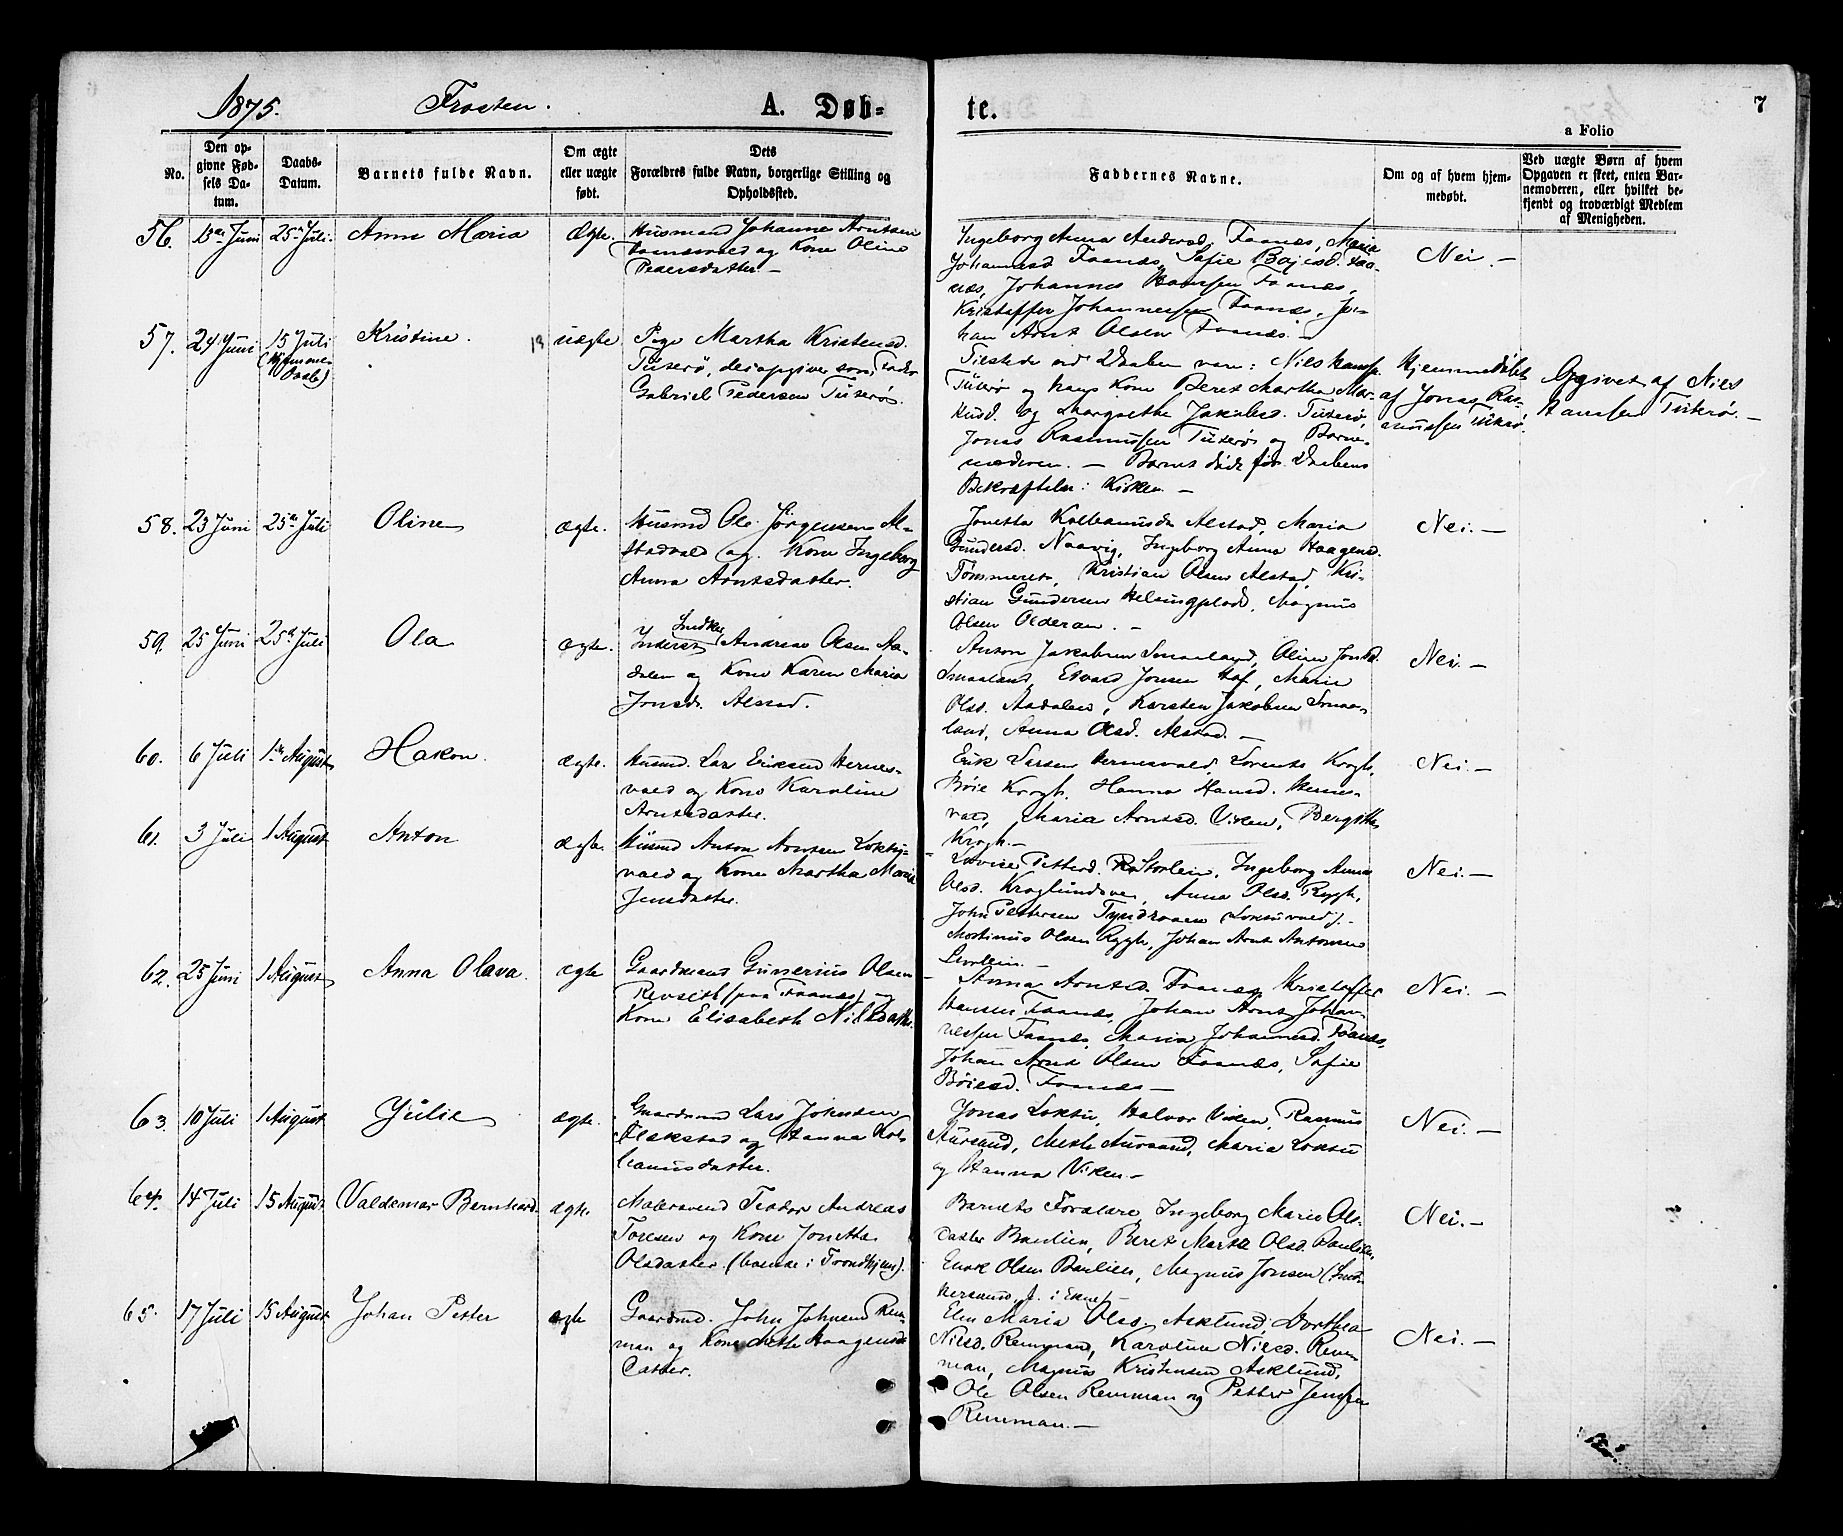 1875. Frosten. A. Døb- te. 7
a Folio
No.
Den op-
givne Fød-
sels Da-
tum.
Daabs-
Datum.
Barnets fulde Navn.
Om ægte
eller uægte
født.
Dets
Forældres fulde Navn, borgerlige Stilling og
Opholdssted.
Faddernes Navne.
Om og af hvem hjem-
medøbt.
Ved uægte Børn af hvem
Opgaven er skeet, enten Bar-
nemoderen, eller hvilket be-
kjendt og troværdigt Medlem
af Menigheden.
56. Juni 25de Juli. Anne Maria Ægte.
Husmand Johannes Arntsen
og Kone Oline
Pedersdatter. —
Ingeborg Anna Andersd. Faanes, Maria
Johannesd Faanes, Sofie Bøjesd. Faa-
nes, Johannes Hansen Faanes,
Kristoffer Johannesen Faanes, Jo-
han Arnt Olsen Faanes. —
Nei. —
57. 24 Juni 15 Juli
(Hjemme-
Daab)
Kristine. uægte
Pige Martha Kristensd.
Tuterø, der opgiver som Fader
Gabriel Pedersen Tuterø.
Tilstede ved Daaben var: Nils Hansen
Tuterø og hans Kone Beret Martha Mar-
kusd. og Margrethe Jakobsd. Tuterø,
Jonas Rasmussen Tuterø og Barne-
moderen. — Barnet døde før Daabens
Bekræftelse i Kirken. —
Hjemmedøbt
af Jonas Ras-
mussen Tuterø.
Opgivet af Nils
Hansen Tuterø. —
58. 23 Juni 25de Juli Oline ægte.
Husmd Ole Jörgensen Al-
stadvald og Kone Ingeborg
Anna Arntsdatter.
Jonetta Kolbeinsdr Alstad, Maria
Gundersd. Naavig, Ingeborg Anna Haagensd.
Tømmeraas, Kristian Olsen Alstad, Kri-
stian Gundersen Helsingplads, Magnus
Olsen Olderan. —
Nei. —
59. 25 Juni 25de Juli Ola ægte.
Inderst Andreas Olsen Aa-
dalen og Kone Karen Maria
Jonsdr. Alstad.
Anton Jakobsen Smaaland, Oline Jonsd.
Smaaland, Edvard Jonsen Hof, Marie
Olsd. Aadalen, Karsten Jakobsen Smaa-
land, Anna Olsd. Alstad. —
Nei. —
60. 6 Juli 1ste August Hakon. ægte.
Husmd. Lars Eriksen Hernes-
vald og Kone Karoline
Arntsdatter.
Erik Larsen Hernesvald, Lorents Krogh,
Böie Krogh, Hanna Hansd. Hernes-
vald, Maria Arntsd. Viken, Bergitte
Krogh. —
Nei. —
61. 3 Juli 1 August Anton ægte.
Husmd Anton Arntsen Loktu-
vald og Kone Martha Maria
Jensdatter.
Lovise Pettersd. Storlein, Ingeborg Anna
Olsd. Kroglundsvee, Anna Olsd. Rygh,
John Pettersen Tyndraaen (Loktuvald).
Mortinus Olsen Rygh, Johan Arnt Antonsen
Storlein. —
Nei. —
62. 25 Juni 1 August Anna Olava. ægte
Gaardmand Gunerius Olsen
Revseth (paa Faanes) og
Kone Elisabeth Nilsdatter.
Anna Arntsd. Faanes, Kristoffer
Hansen Faanes, Johan Arnt Johan-
nessen Faanes, Maria Johannesd. Faanes,
Johan Arnt Olsen Faanes, Sofie
Böiesd. Faanes —
Nei. —
63. 10 Juli 1 August Julie ægte.
Gaardmand Lars Johnsen
Flakstad og Hanna Kol-
banusdatter.
Jonas Loktu, Halvor Viken, Rasmus
Aursand, Mette Aursand, Maria Loktu
og Hanna Viken —
Nei. —
64. 14 Juli 15 August Valdemar Bernhard. ægte
Malersvend Teodor Andreas
Toresen og Kone Jonetta
Olsdatter (boende i Trondhjem).
Barnets Forældre, Ingeborg Marie Ols-
datter Baulien, Beret Marta Olsd. Baulien,
Enok Olsen Baulien, Magnus Jonsen
Nei. —
65. 17 Juli 15 August Johan Petter ægte
Gaardmd. John Johnsen Rem-
man og Kone Mette Haagens-
datter.
Elen Maria Olsd. Asklund, Dorthea
Nilsd. Remman, Karoline Nilsd. Rem-
man, Magnus Kristensen Asklund,
Ole Olsen Remman og Petter Jensen
Remman. —
Nei. —